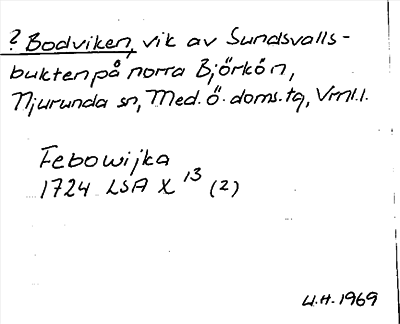 ? Bodviken, vik av Sundsvalls-
bukten på norra Björkön,
Njurunda sn, Med. ö. doms.tg, Vrnl.l.
Febowijka
1724 LSA X 13 (2)
U.H. 1969